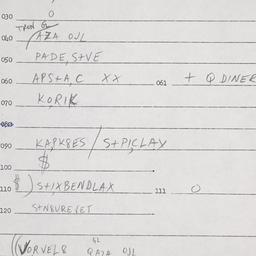 030 0
TRON G
040 AZA OJL
050 PADE, S+VE
060 APS+A, C XX 061 + Q DINER
070 KORIK
080
090 KAPKSES / S+PICLAY
100 $
110 $ ) S+IXBENDLAX 111 0
120 S+NBUREVET
((VORVEL8 QAZA OJL